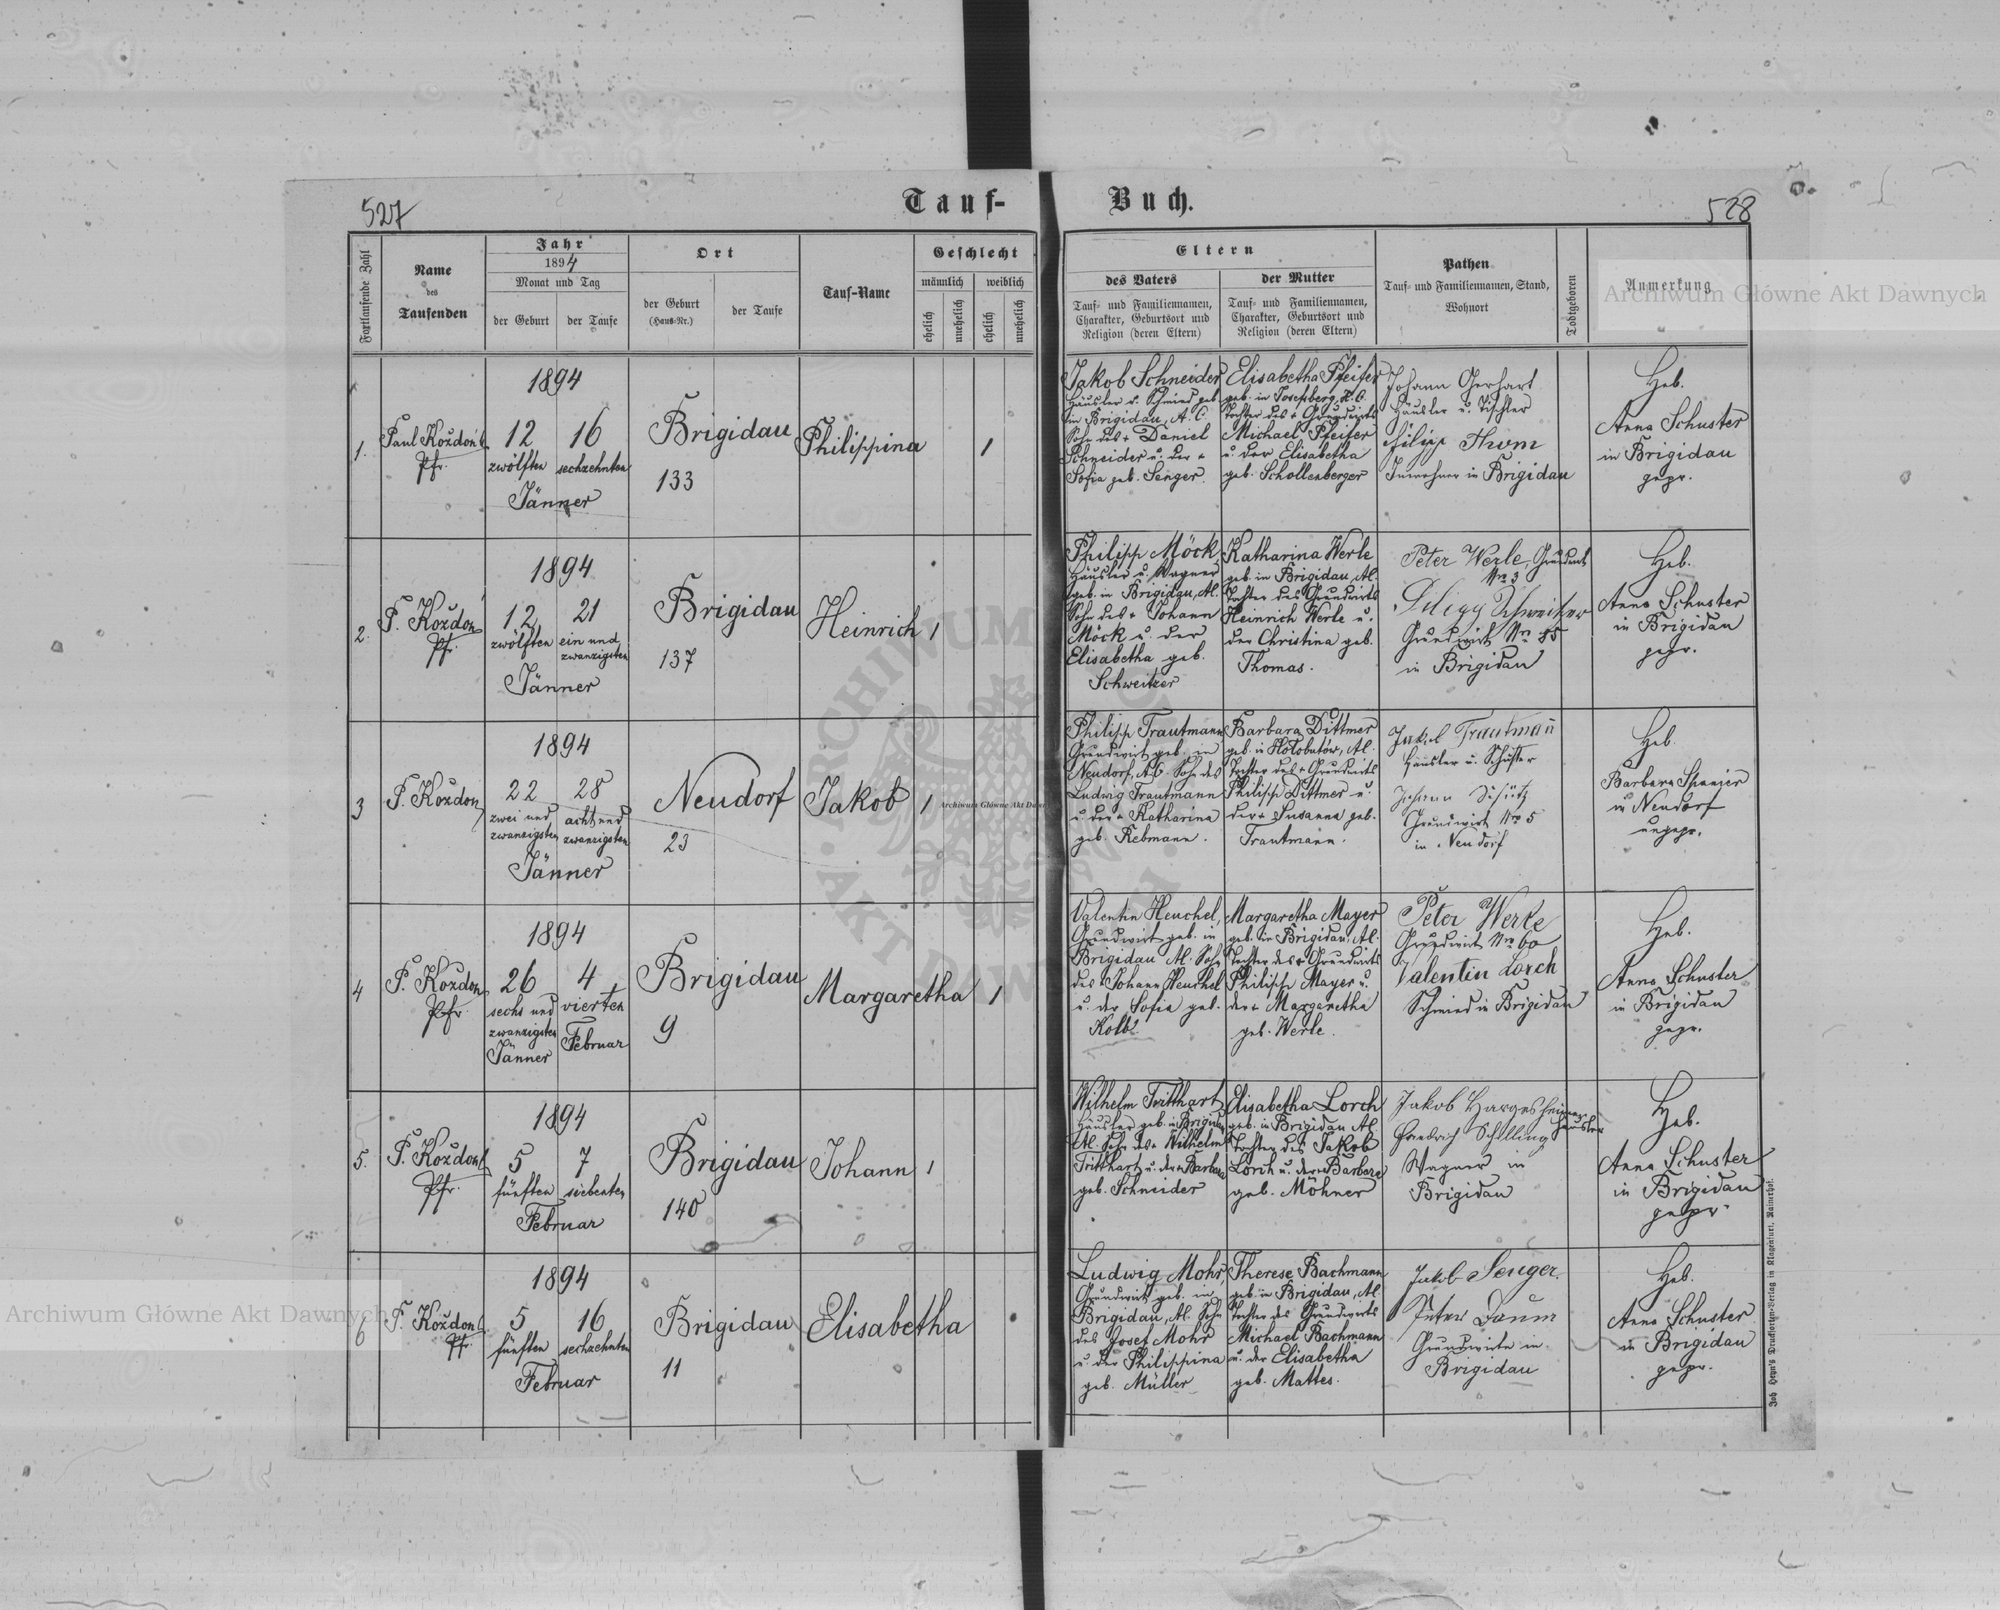 527
Tauf-
Buch.
528
Fortlaufende Zahl
Name
des
Taufenden
Jahr
1894
Monat und Tag
der Geburt
der Taufe
Ort
der Geburt
(Haus-Nr.)
der Taufe
Tauf-Name
Geschlecht
männlich
weiblich
ehelich
unehelich
ehelich
unehelich
Eltern
des Vaters
Tauf- und Familiennamen,
Charakter, Geburtsort und
Religion (deren Eltern)
der Mutter
Tauf- und Familiennamen,
Charakter, Geburtsort und
Religion (deren Eltern)
Pathen
Tauf- und Familiennamen, Stand,
Wohnort
Todtgeboren
Anmerkung
1.
Paul Koždoń
Pfr.
1894
12
zwölften
16
sechzehnten
Jänner
Brigidau
133
Philippina
1
Jakob Schneider
Häusler u. Schmied geb.
in Brigidau, A. C.
Sohn des + Daniel
Schneider u. der +
Sofia geb. Senger.
Elisabetha Pfeifer
geb. in Josefsberg, H. C.
Tochter des + Grundwirts
Michael Pfeifer
u. der Elisabetha
geb. Schollenberger
Johann Gerhart
Häusler u. Tischler
Filipp Thom
Inwohner in Brigidau
Heb.
Anna Schuster
in Brigidau
gepr.
2.
P. Koždoń
Pfr.
1894
12
zwölften
21
ein und
zwanzigsten
Jänner
Brigidau
137
Heinrich
1
Philipp Möck
Häusler u. Wagner
geb. in Brigidau, AC.
Sohn des + Johann
Möck u. der
Elisabetha geb.
Schweitzer
Katharina Werle
geb. in Brigidau, AC.
Tochter des Grundwirts
Heinrich Werle u.
der Christina geb.
Thomas.
Peter Werle, Grundwirt
Nro 3
Filipp Schweitzer
Grundwirt Nro 85
in Brigidau
Heb.
Anna Schuster
in Brigidau
gepr.
3
P. Koždoń
1894
22
zwei und
zwanzigsten
28
acht und
zwanzigsten
Jänner
Neudorf
23
Jakob
1
Philipp Trautmann
Grundwirt geb. in
Neudorf, AC. Sohn des
Ludwig Trautmann
u. der + Katharina
geb. Rebmann.
Barbara Dittmer
geb. in Hołobutów, AC.
Tochter des + Grundwirts
Philipp Dittmer u.
der + Susanna geb.
Trautmann.
Jakob Trautmann
Häusler u. Schuster
Johann Schütz
Grundwirt Nro 5
in Neudorf
Heb.
Barbara Speeier
in Neudorf
ungepr.
4
P. Koždoń
Pfr.
1894
26
sechs und
zwanzigsten
Jänner
4
vierten
Februar
Brigidau
9
Margaretha
1
Valentin Heuchel,
Grundwirt geb. in
Brigidau AC. Sohn
des Johann Heuchel
u. der Sofia geb.
Kolb.
Margaretha Mayer
geb. in Brigidau, AC.
Tochter des + Grundwirts
Philipp Mayer u.
der + Margaretha
geb. Werle.
Peter Werle
Grundwirt Nro 60
Valentin Lorch
Schmied in Brigidau
Heb.
Anna Schuster
in Brigidau
gepr.
5.
P. Koždoń
Pfr.
1894
5
fünften
7
siebenten
Februar
Brigidau
140
Johann
1
Wilhelm Tritthart
Häusler geb. in Brigidau
AC. Sohn des + Wilhelm
Tritthart u. der + Barbara
geb. Schneider
Elisabetha Lorch
geb. in Brigidau AC.
Tochter des Jakob
Lorch u. der + Barbara
geb. Möhner
Jakob Hargesheimer
Häusler
Friedrich Schilling
Wagner in
Brigidau
Heb.
Anna Schuster
in Brigidau
gepr.
6
P. Koždoń
Pfr.
1894
5
fünften
16
sechzehnten
Februar
Brigidau
11
Elisabetha
Ludwig Mohr,
Grundwirt geb. in
Brigidau, AC. Sohn
des Josef Mohr
u. der Philippina
geb. Müller
Therese Bachmann
geb. in Brigidau, AC.
Tochter des Grundwirts
Michael Bachmann
u. der Elisabetha
geb. Mattes.
Jakob Senger.
Peter Daum
Grundwirte in
Brigidau
Heb.
Anna Schuster
in Brigidau
gepr.
Joh. Heyn's Drucksorten-Verlag in Klagenfurt, Rainerhof.
Archiwum Główne Akt Dawnych
Archiwum Główne Akt Dawnych
Archiwum Główne Akt Dawnych
ARCHIWUM
AKT DAWNYCH